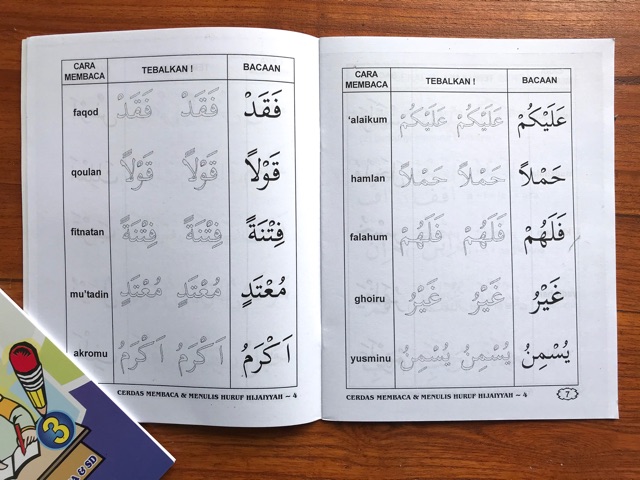 CARA MEMBACA TEBALKAN ! BACAAN
faqod فَقَدْ فَقَدْ فَقَدْ
qoulan قَوْلاً قَوْلاً قَوْلاً
fitnatan فِتْنَةً فِتْنَةً فِتْنَةً
mu'tadin مُعْتَدٍ مُعْتَدٍ مُعْتَدٍ
akromu اَكْرَمُ اَكْرَمُ اَكْرَمُ
CERDAS MEMBACA & MENULIS HURUF HIJAIYYAH – 4
CARA MEMBACA TEBALKAN ! BACAAN
'alaikum عَلَيْكُمْ عَلَيْكُمْ عَلَيْكُمْ
hamlan حَمْلاً حَمْلاً حَمْلاً
falahum فَلَهُمْ فَلَهُمْ فَلَهُمْ
ghoiru غَيْرُ غَيْرُ غَيْرُ
yusminu يُسْمِنُ يُسْمِنُ يُسْمِنُ
CERDAS MEMBACA & MENULIS HURUF HIJAIYYAH – 4 7
3
& SD